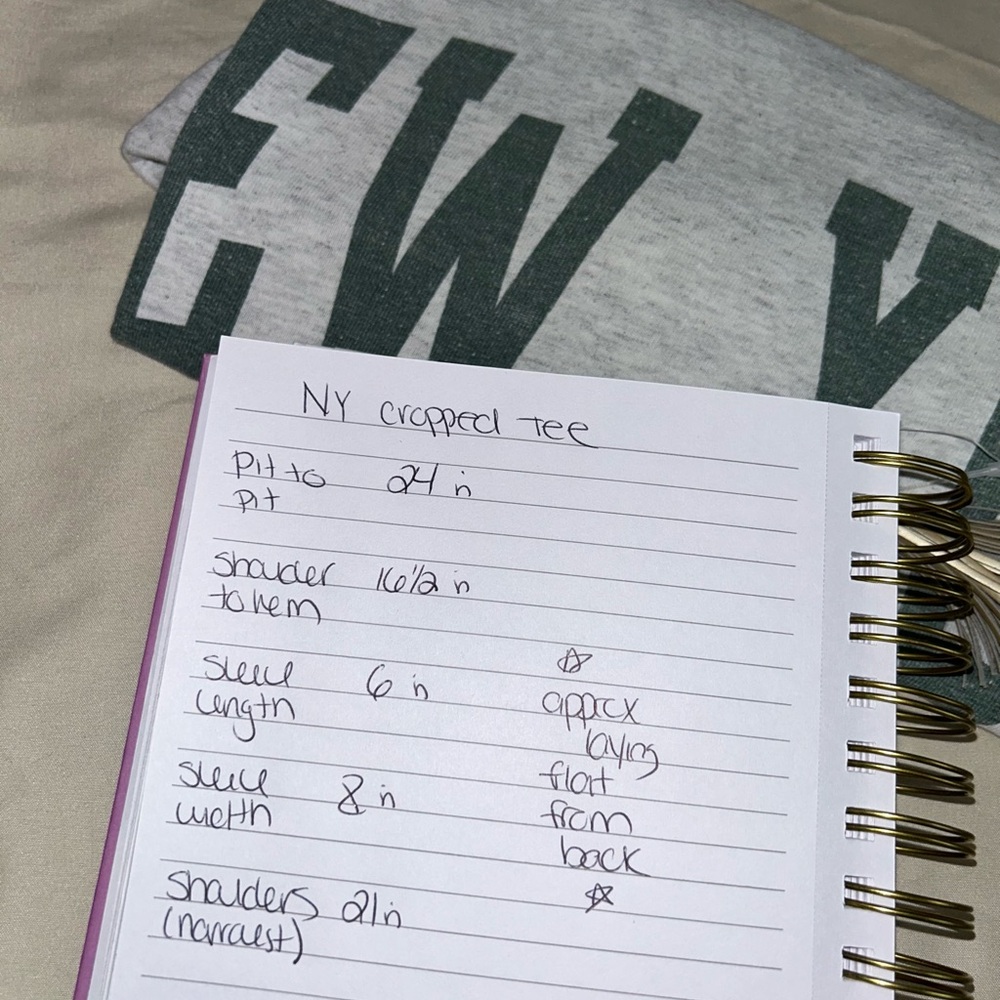 EW Y
NY cropped Tee
Pit to 24 in
pit
Shoulder 16 1/2 in
to hem
Sleeve 6 in
length
Sleeve 8 in
width
Shoulders 21 in
(narrowest)
☆
approx
laying
flat
from
back
☆